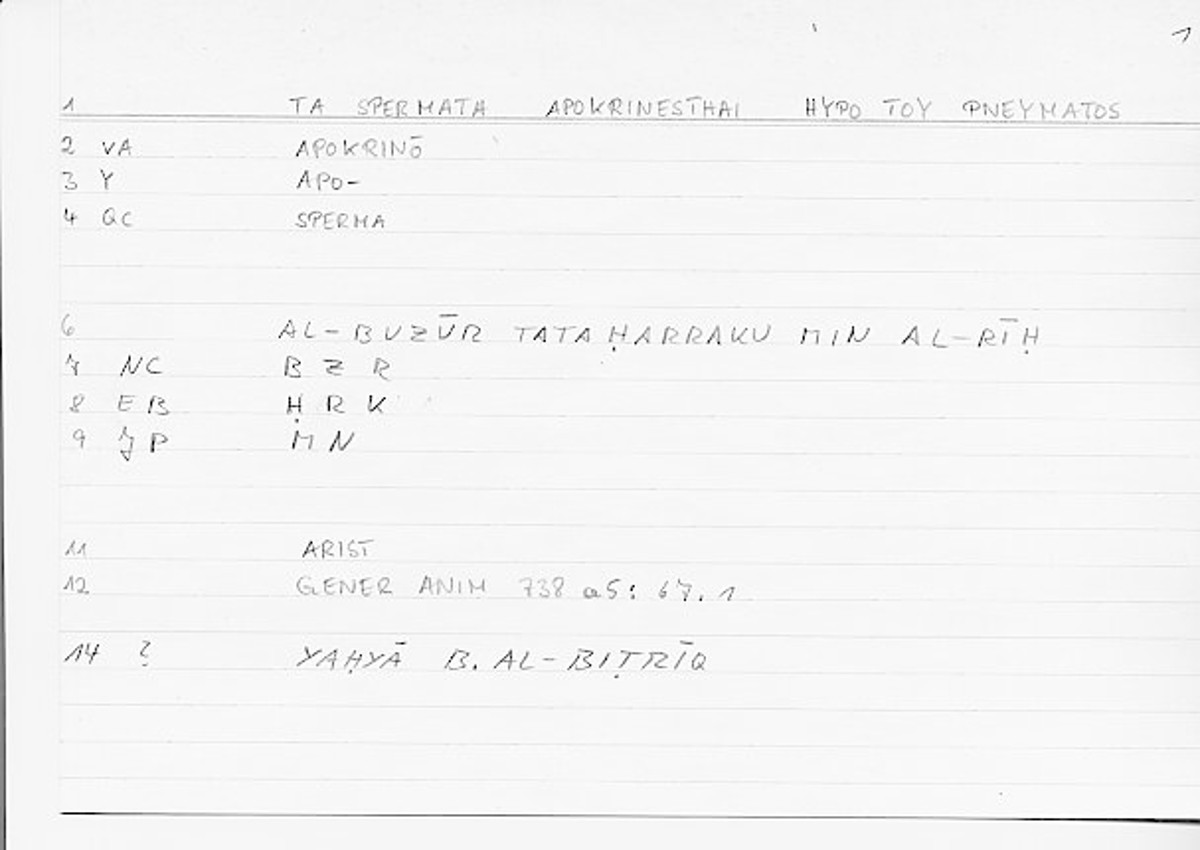 1
1 TA SPERMATA APOKRINESTHAI HYPO TOY PNEYMATOS
2 VA APOKRINŌ
3 Y APO-
4 QC SPERMA
6 AL-BUZŪR TATAḤARRAKU MIN AL-RĪḤ
7 NC B Z R
8 EB Ḥ R K
9 JP M N
11 ARIST
12 GENER ANIM 738 a5: 67.1
14 ? YAḤYĀ B. AL-BIṬRĪQ